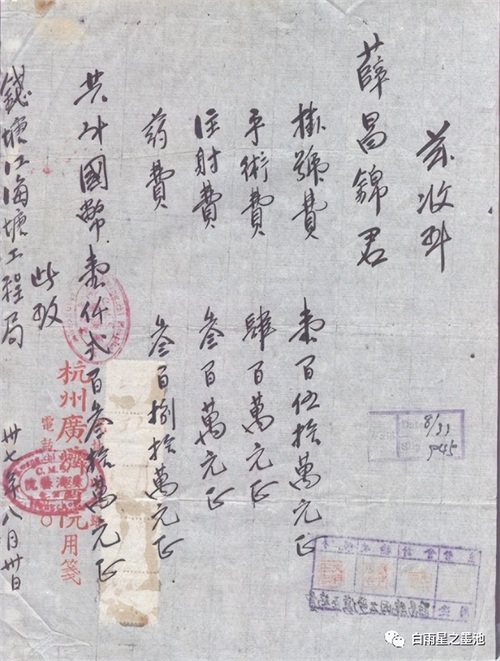 茲收到
薛昌錦君
掛號費 壹百伍拾萬元正
手術費 肆百萬元正
注射費 叁百萬元正
药費 叁百捌拾萬元正
共计國幣壹仟弍百叁拾萬元正
此致
錢塘江海塘工程局
卅七年八月卅日
杭州廣濟醫院用箋
電話
廣濟醫院
8/33
9045
白雨星之墨池